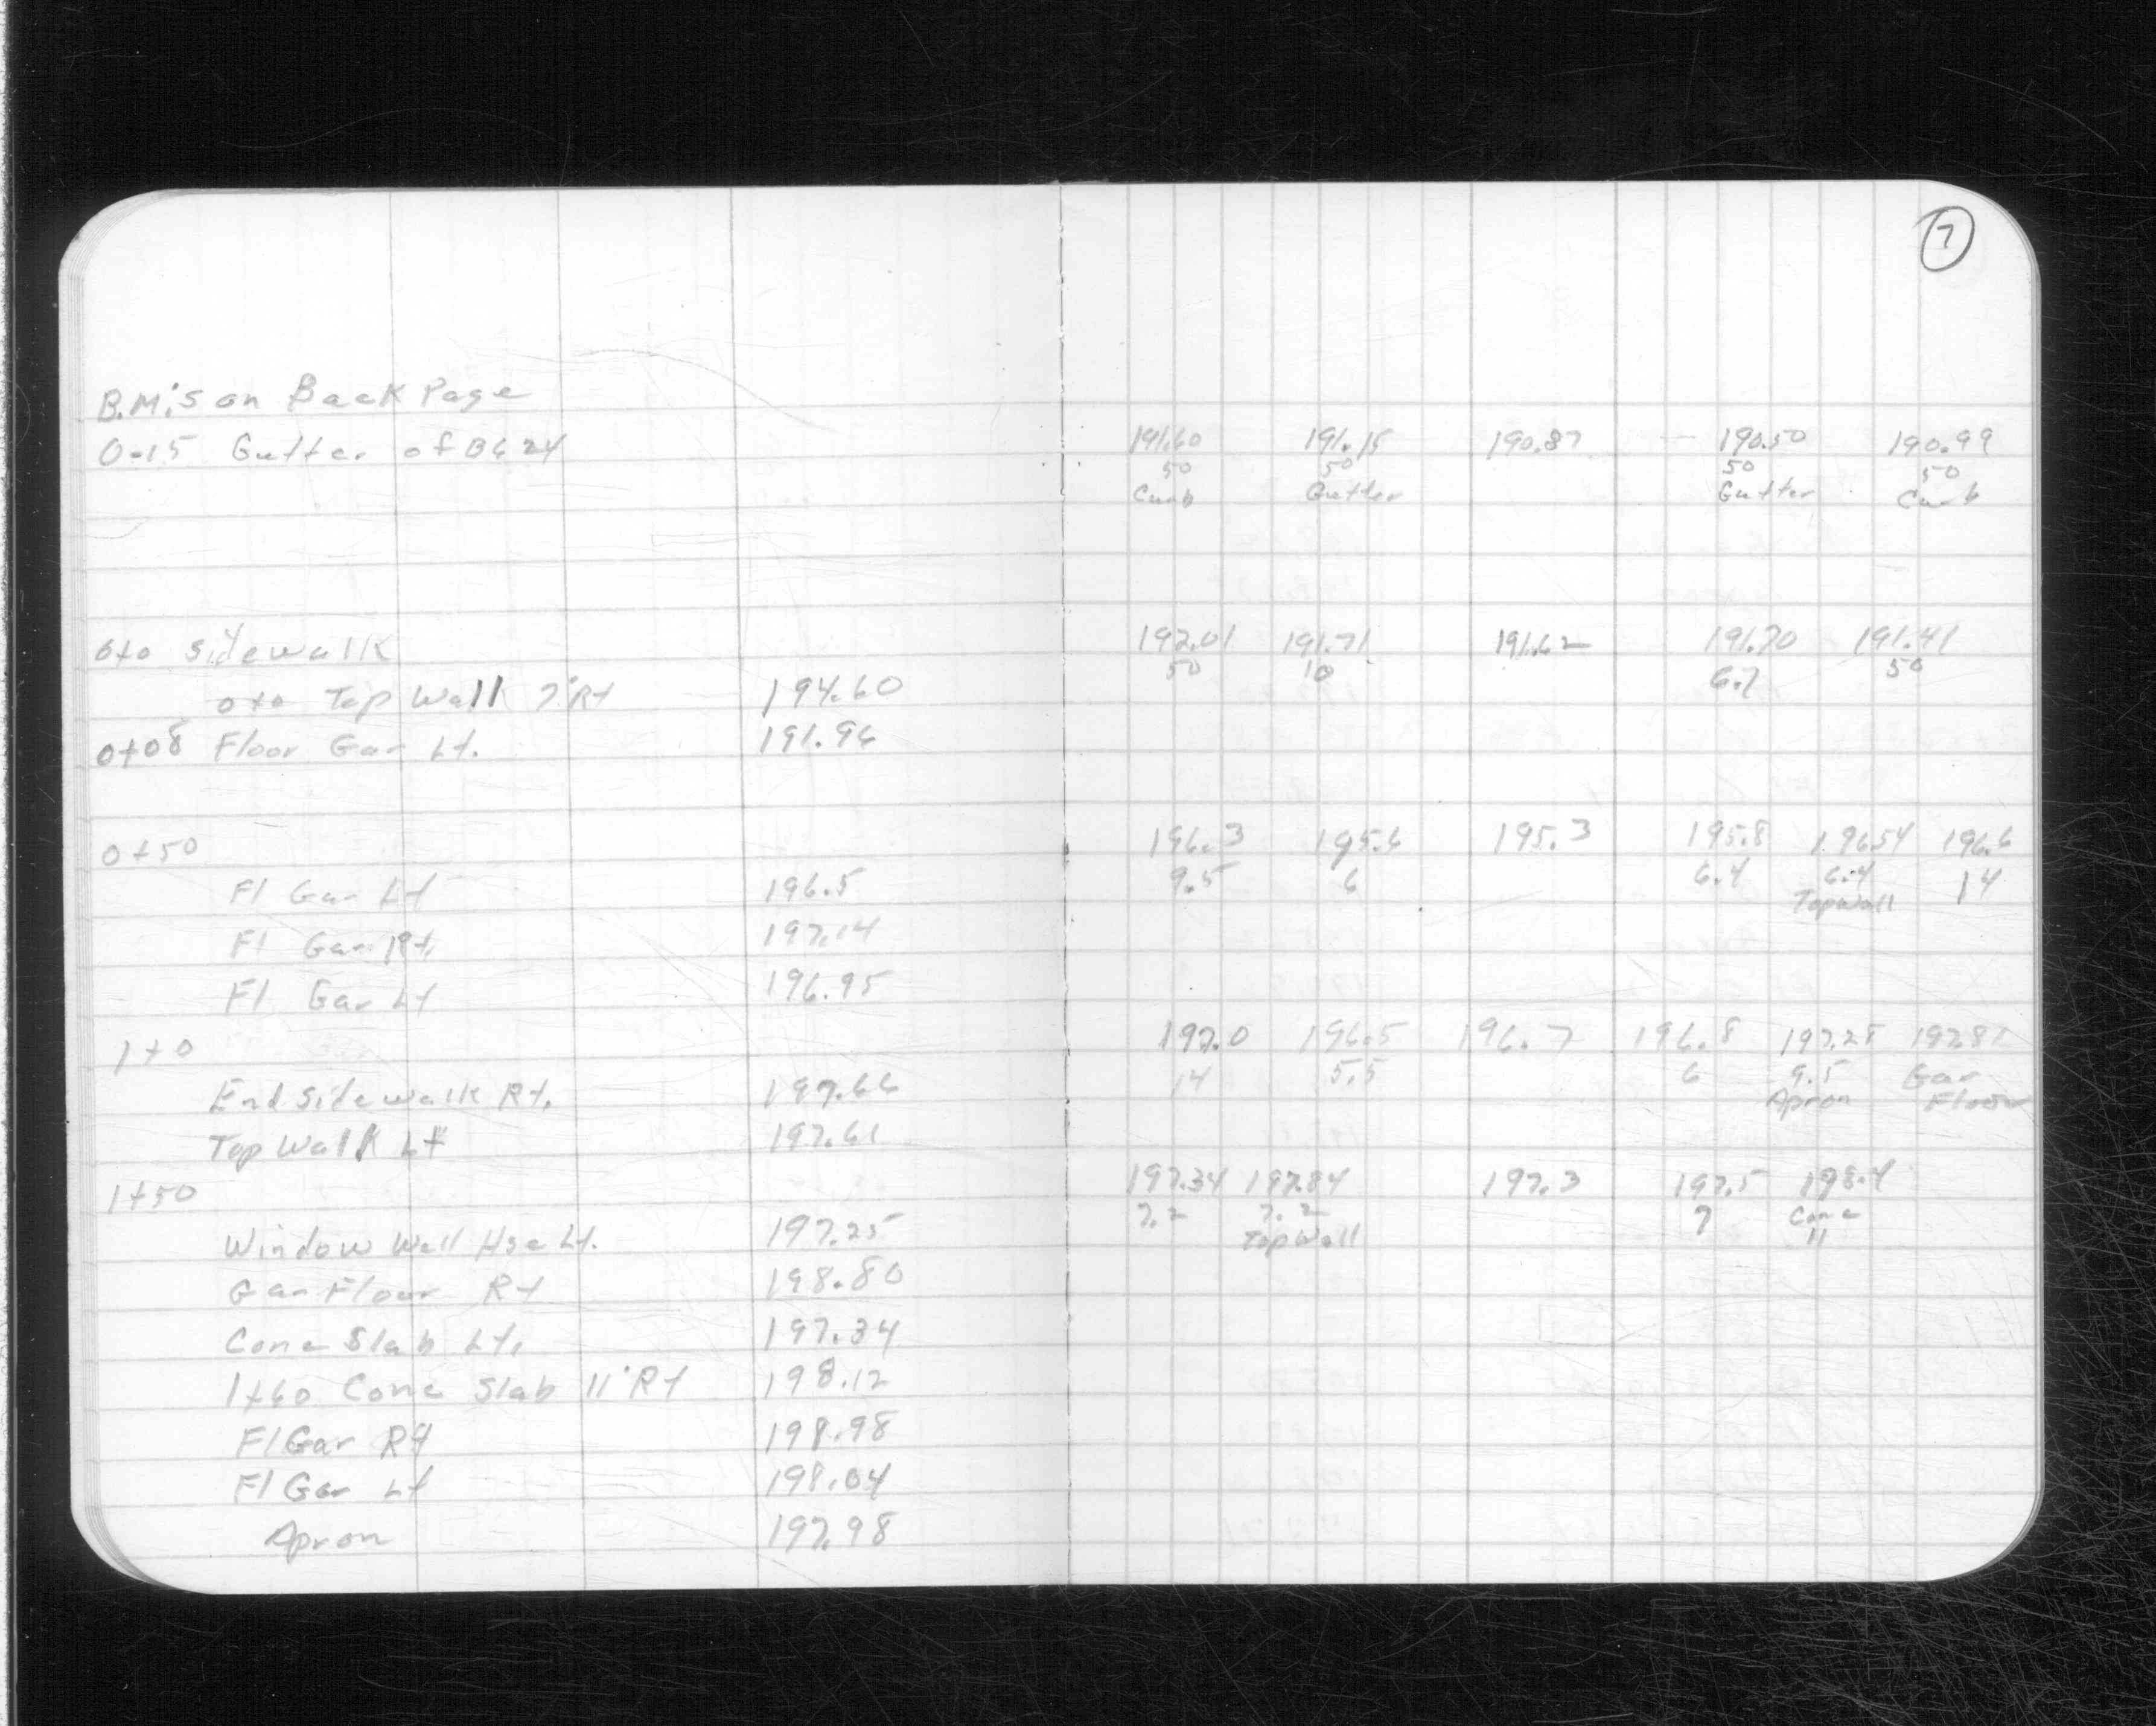 7
B.M.'s on Back Page
0-15 Gutter of BG 24
191.60 191.15 190.87 190.50 190.99
50 50 50 50
Curb Gutter Gutter Curb
0+0 Sidewalk
192.01 191.71 191.62 191.70 191.41
50 10 6.7 50
0+0 Top Wall 7' Rt 194.60
0+08 Floor Gar Lt. 191.96
0+50
196.3 195.6 195.3 195.8 196.54 196.6
9.5 6 6.4 6.4 14
Top Wall
Fl Gar Lt 196.5
Fl Gar Rt. 197.14
Fl Gar Lt 196.95
1+0
197.0 196.5 196.7 196.8 197.28 197.87
14 5.5 6 9.5 Gar
Apron Floor
End Sidewalk Rt. 197.66
Top Walk Lt 197.61
1+50
197.34 197.84 197.3 197.5 198.4
7.2 7.2 7 Conc
Top Wall 11
Window Well Hse Lt. 197.25
Gar Floor Rt 198.80
Conc Slab Lt. 197.34
1+60 Conc Slab 11' Rt 198.12
Fl Gar Rt 198.98
Fl Gar Lt 198.04
Apron 197.98